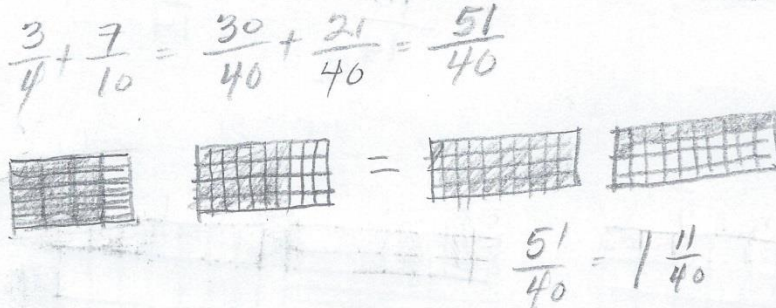 3/4 + 7/10 = 30/40 + 21/40 = 51/40
=
51/40 = 1 11/40